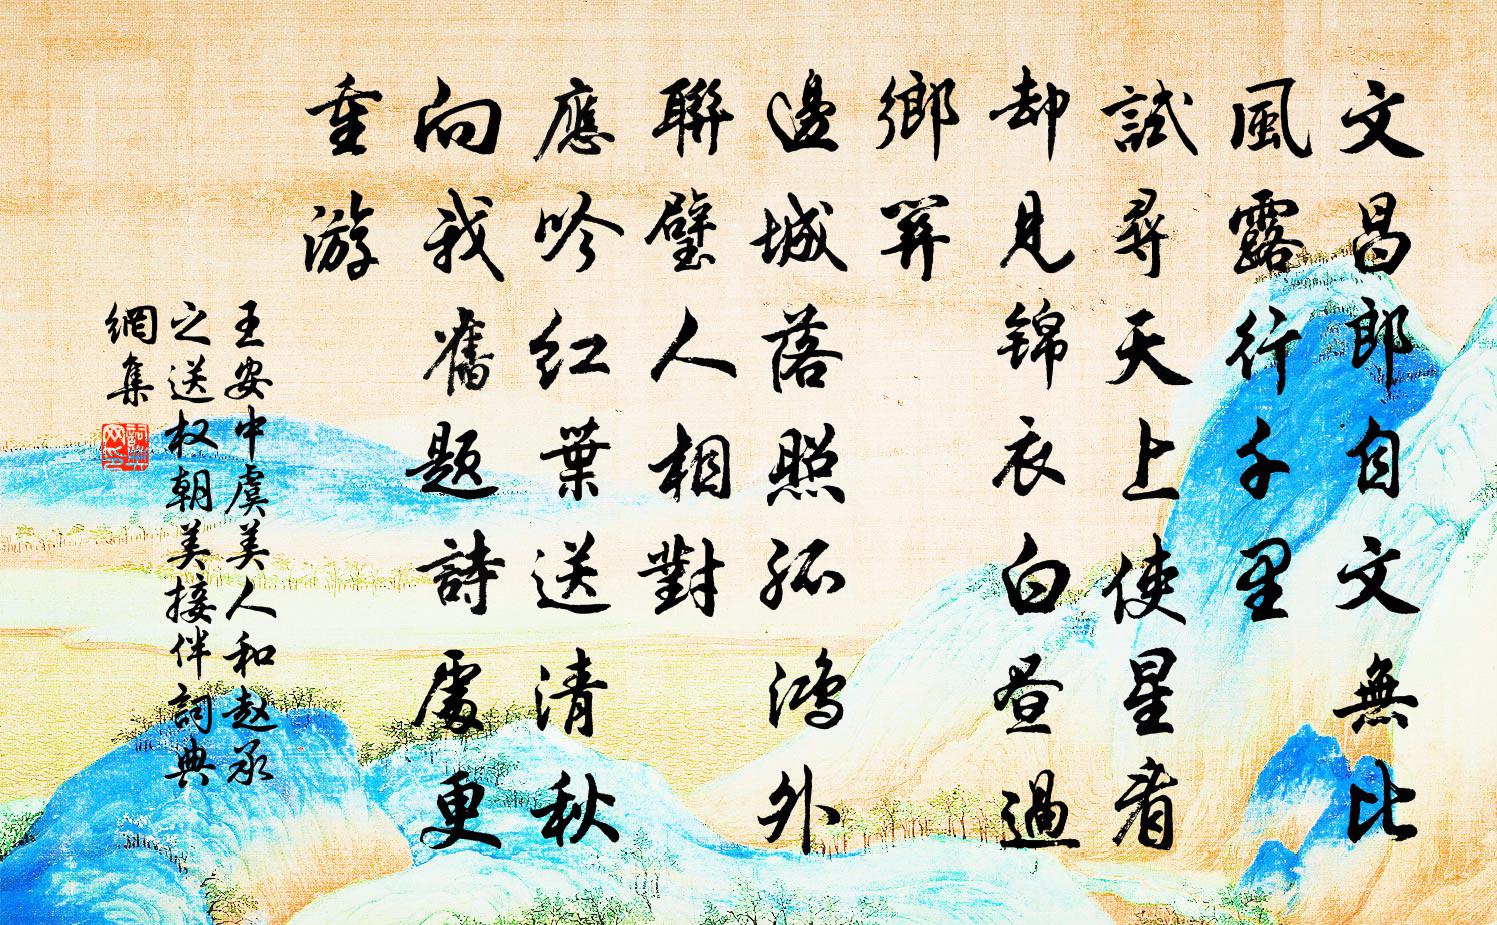 文昌郎自文無比
風露行千里
試尋天上使星看
却見錦衣白晝過
鄉關
邊城落照孤鴻外
聯璧人相對
應吟紅葉送清秋
向我舊題詩處更
重游
王安中虞美人和赵承
之送权朝美接伴詞典
網集